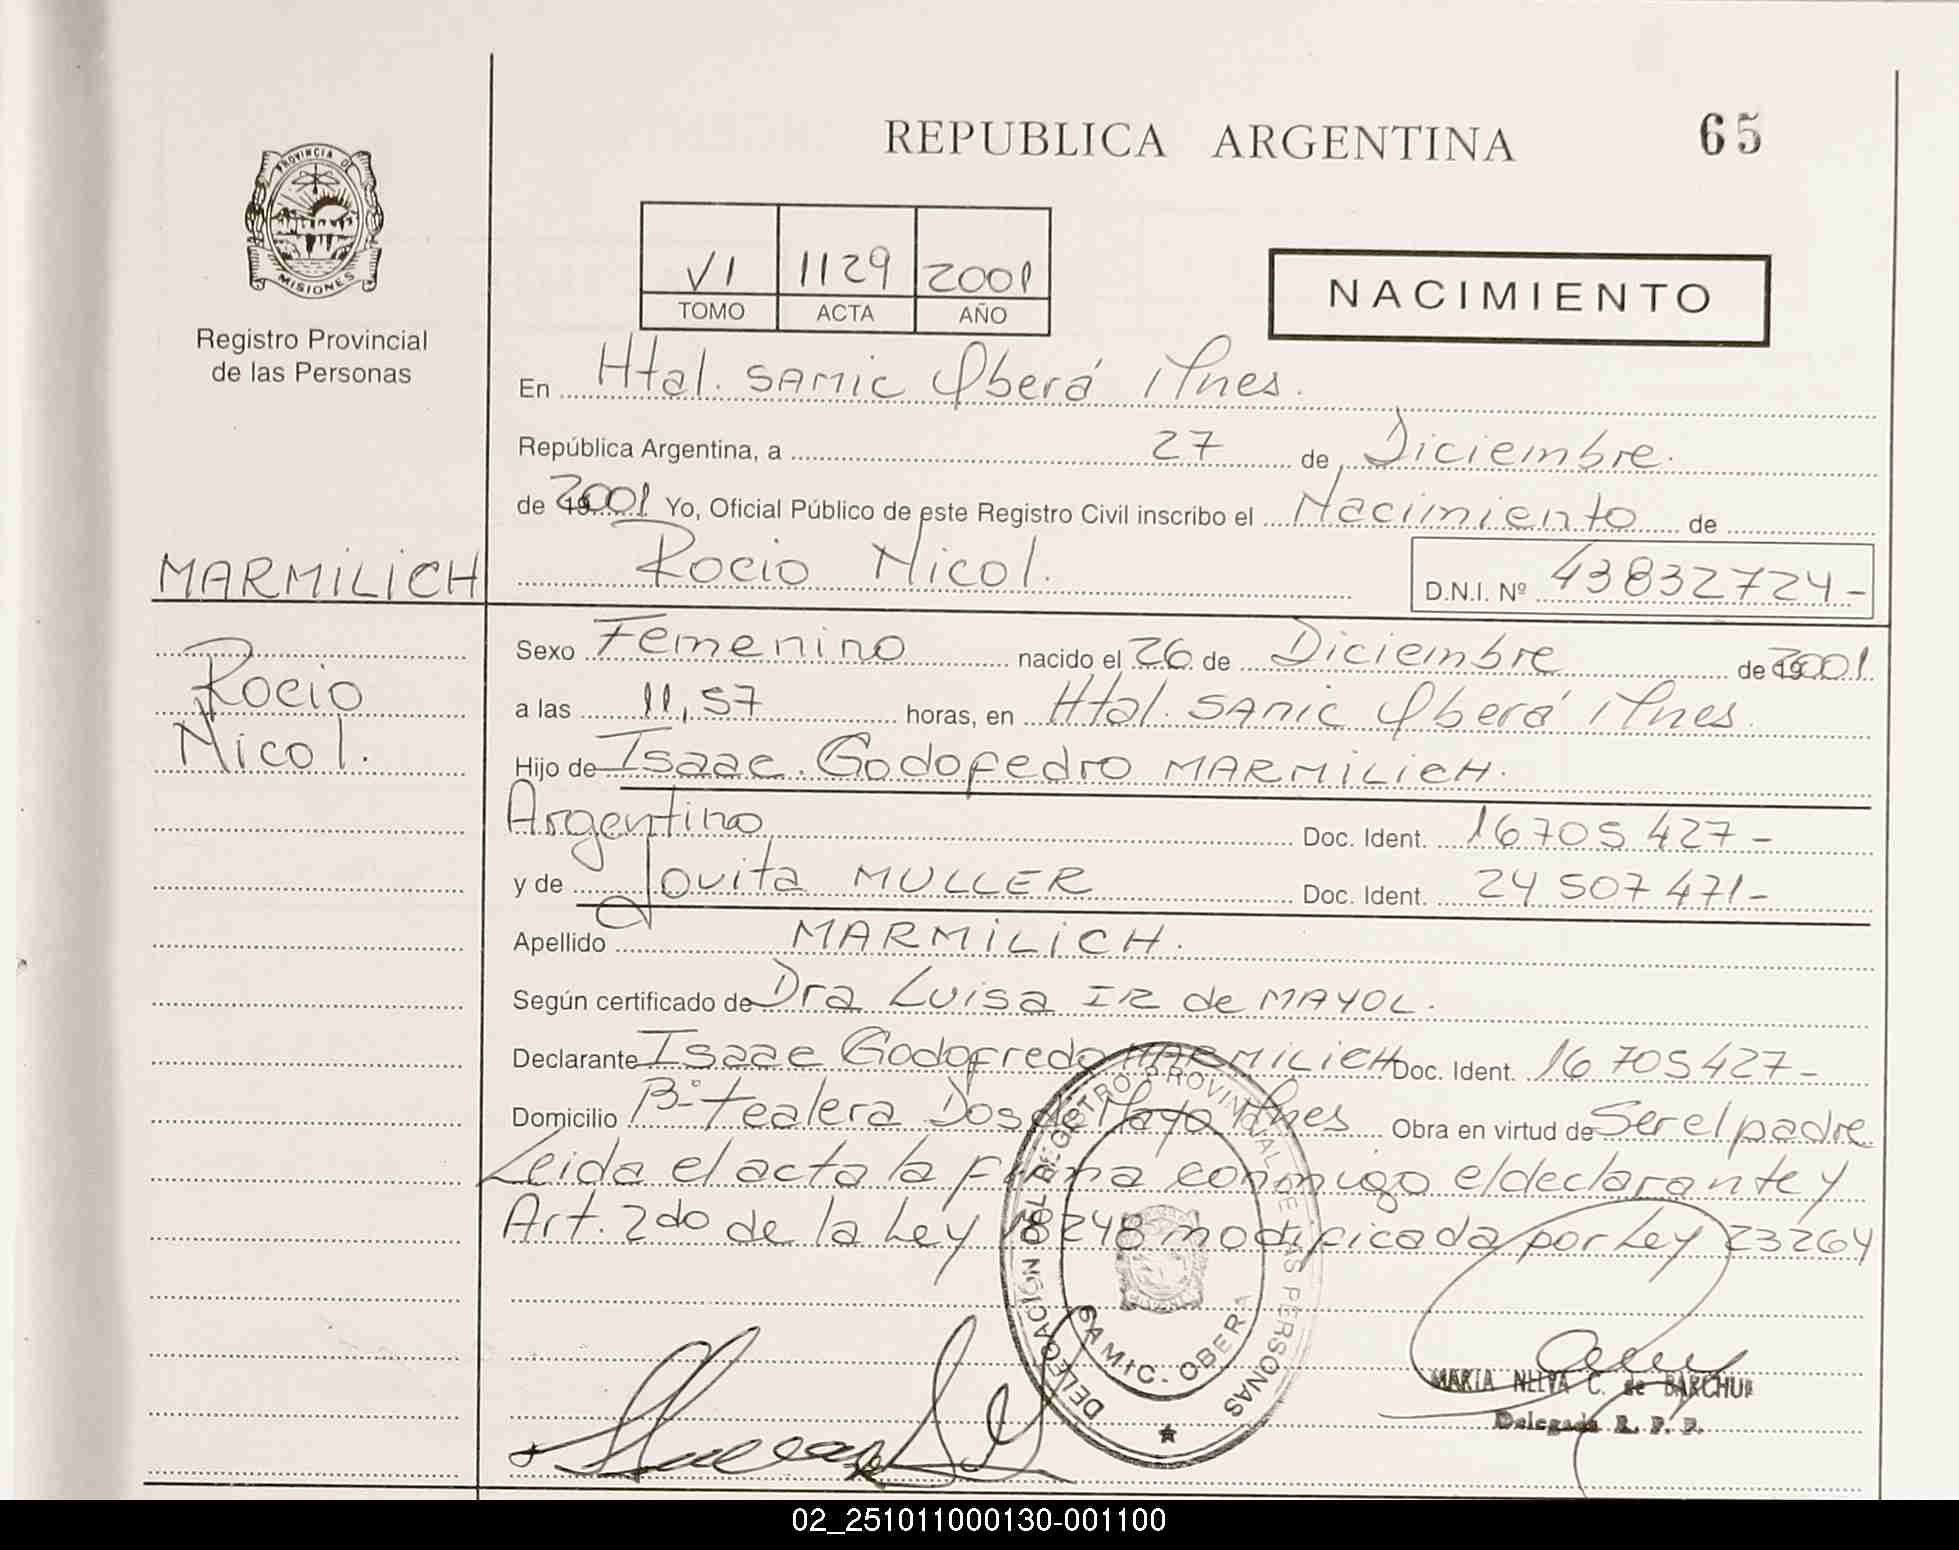 REPUBLICA ARGENTINA
65
PROVINCIA D
MISIONES
Registro Provincial
de las Personas
VI 1129 2001
TOMO ACTA AÑO
NACIMIENTO
En Htal. SAMIC Oberá Mnes.
República Argentina, a 27 de Diciembre.
de 2001 Yo, Oficial Público de este Registro Civil inscribo el Nacimiento de
MARMILICH
Rocio Nicol.
D.N.I. Nº 43832724-
Rocio
Nicol.
Sexo Femenino nacido el 26 de Diciembre de 2001
a las 11,57 horas, en Htal. SAMIC Oberá Mnes.
Hijo de Isaac. Godofedro MARMILICH.
Argentino Doc. Ident. 16705427-
y de Jovita MULLER Doc. Ident. 24507471-
Apellido MARMILICH.
Según certificado de Dra Luisa IR de MAYOL.
Declarante Isaac Godofredo MARMILICH Doc. Ident. 16705427-
Domicilio Bº tealera Dos de Mayo Mnes Obra en virtud de Ser el padre
Leida el acta la firma conmigo el declarante y
Art. 2do de la Ley 18248 modificada por Ley 23264
DELEGACIÓN DEL REGISTRO PROVINCIAL DE LAS PERSONAS
SAMIC. OBERA
MARIA NELVA C. de BARCHUK
Delegada R. P. P.
02_251011000130-001100